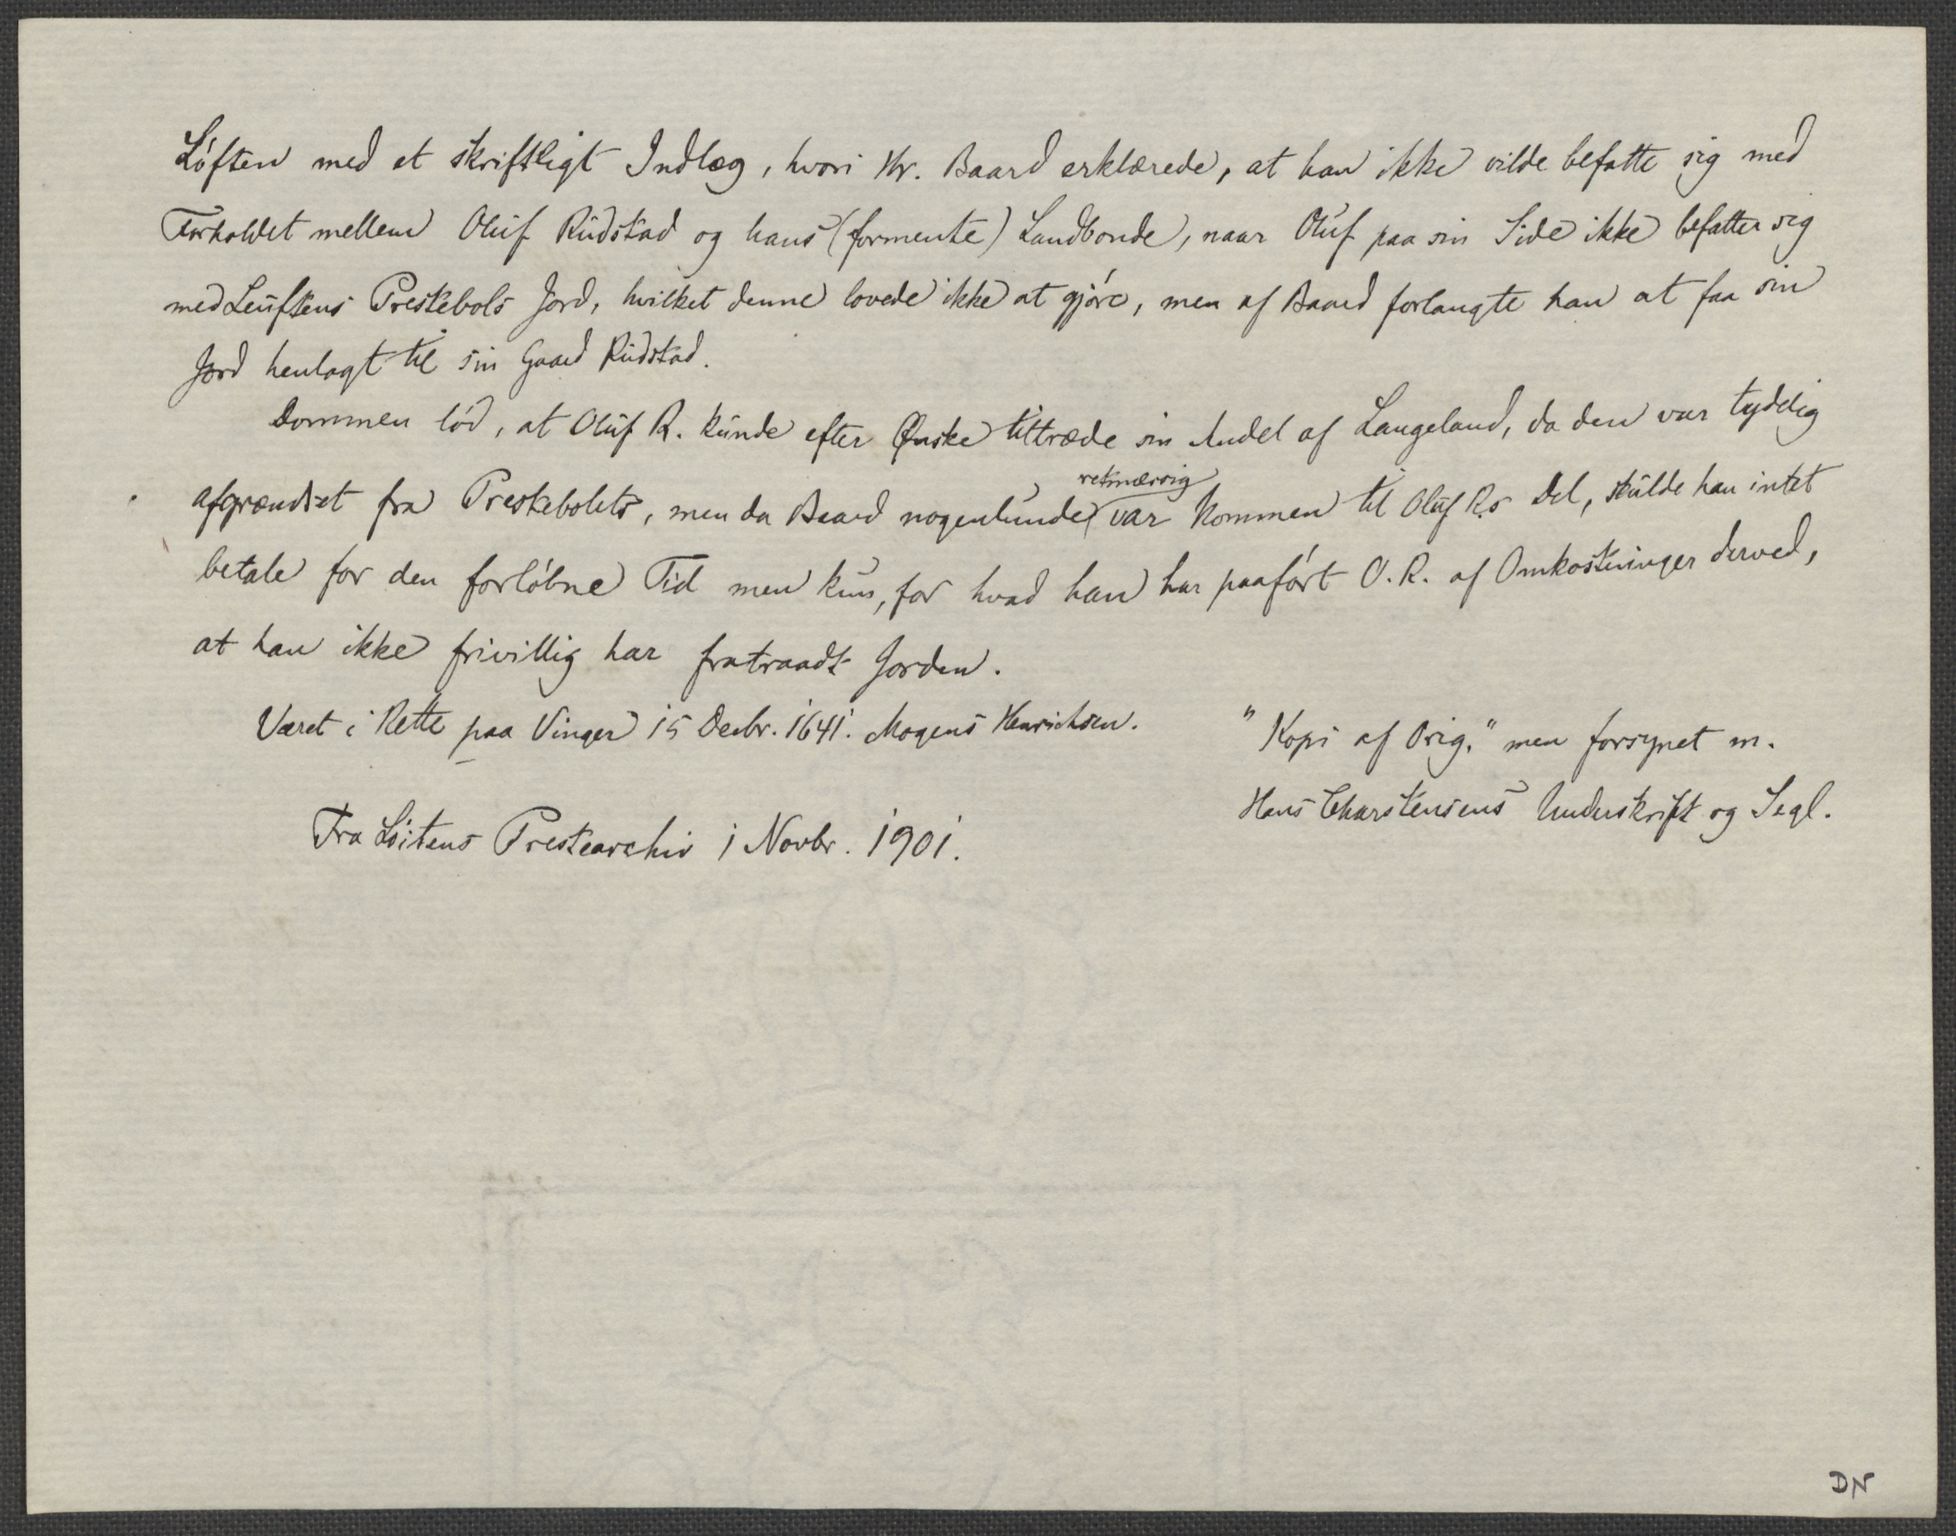 Löften med et skriftligt Indlæg, hvori Hr. Baard erklærede, at han ikke vilde befatte sig med
Forholdet mellem Oluf Rudstad og hans (formente) Landbonde, naar Oluf paa sin Side ikke befatter sig
med Leuftens Prestebols Jord, hvilket denne lovede ikke at gjöre, men af Baard forlangte han at faa sin
Jord henlagt til sin Gaard Rudstad.
Dommen löd, at Oluf R. kunde efter Ønske tiltræde sin Andel af Langeland, da den var tydelig
afgrændset fra Prestebolets, men da Baard nogenlunde retmæssig var kommen til Oluf R.s Del, skulde han intet
betale for den forlöbne Tid men kun, for hvad han har paafört O. R. af Omkostninger derved,
at han ikke frivillig har fratraadt Jorden.
Været i Rette paa Vinger 15 Decbr. 1641. Mogens Henrichsen.
"Kopi af Orig." men forsynet m.
Hans Charstensens Underskrift og Segl.
Fra Löitens Prestearchiv i Novbr. 1901.
DN